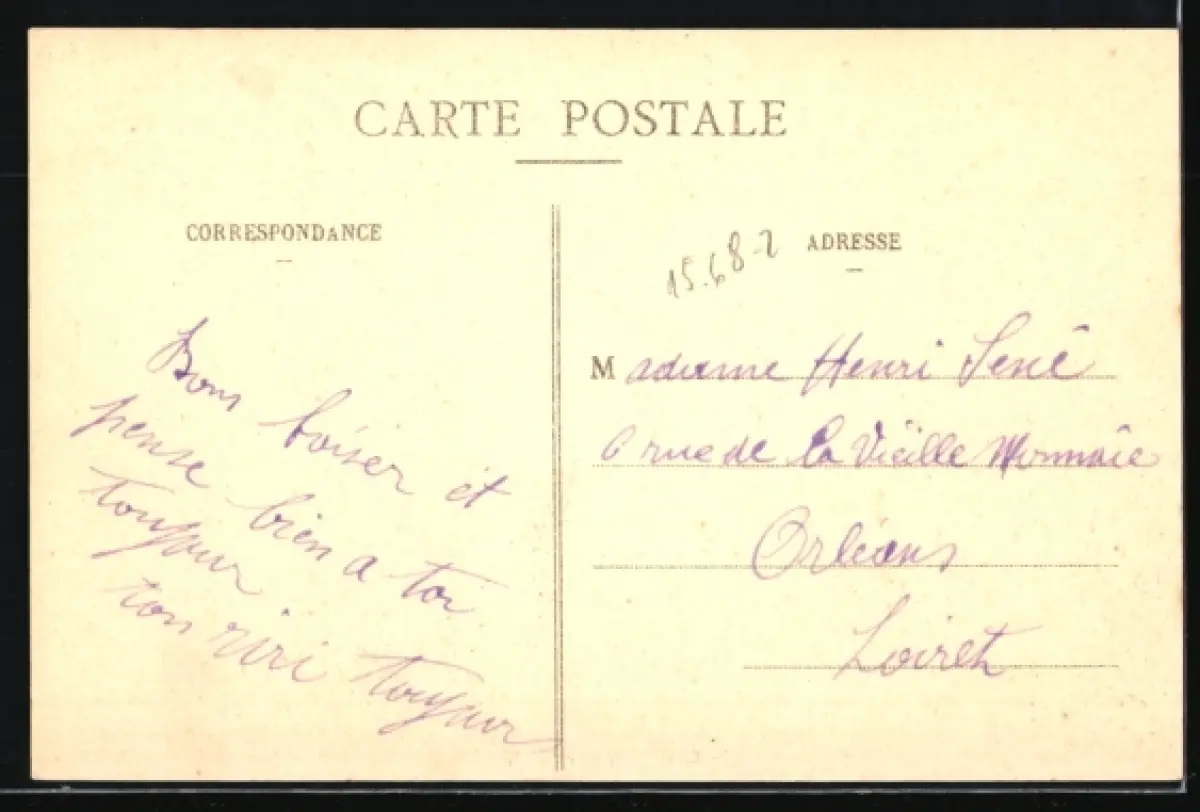 CARTE POSTALE
CORRESPONDANCE
Bons baiser et
pense bien a toi
toujour
ton riri toujour
15.682
ADRESSE
Madame Henri Sené
6 rue de la Vieille Monnaie
Orléans
Loiret